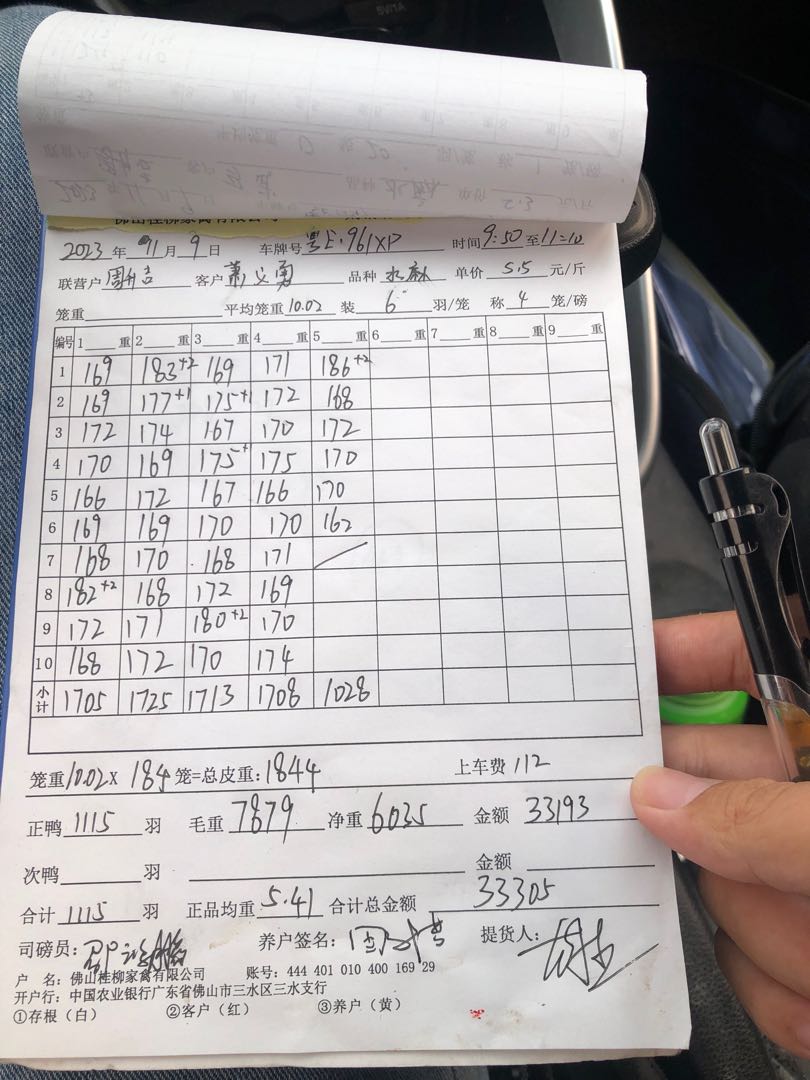 佛山桂柳家禽有限公司
2023 年 11 月 9 日 车牌号 粤E·961XP 时间 9:50 至 11:10
联营户 客户 萧义勇 品种 水麻 单价 5.5 元/斤
笼重 平均笼重 10.02 装 6 羽/笼 称 4 笼/磅
编号 1 重 2 重 3 重 4 重 5 重 6 重 7 重 8 重 9 重
1 169 183+2 169 171 186+2
2 169 177+1 175+1 172 168
3 172 174 167 170 172
4 170 169 175+ 175 170
5 166 172 167 166 170
6 169 169 170 170 162
7 168 170 168 171
8 182+2 168 172 169
9 172 171 180+2 170
10 168 172 170 174
小计 1705 1725 1713 1708 1028
笼重 10.02 X 184 笼=总皮重: 1844 上车费 112
正鸭 1115 羽 毛重 7879 净重 6035 金额 33193
次鸭 羽 金额
合计 1115 羽 正品均重 5.41 合计总金额 33305
司磅员: 养户签名: 提货人:
户 名: 佛山桂柳家禽有限公司 账号: 444 401 010 400 169 29
开户行: 中国农业银行广东省佛山市三水区三水支行
①存根（白） ②客户（红） ③养户（黄）